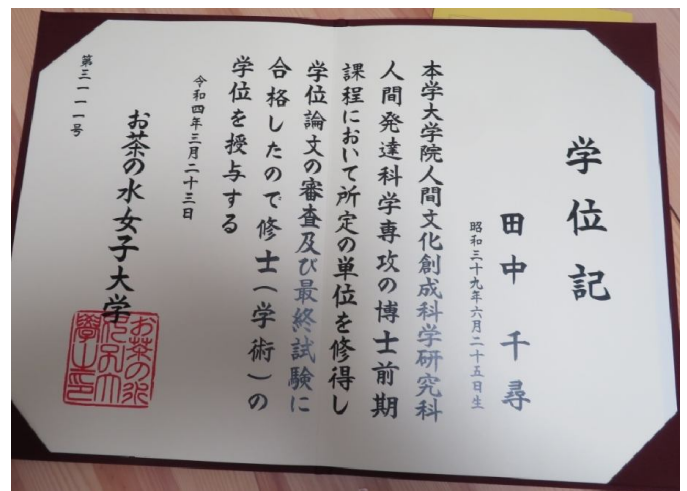 学位記
田中千尋
昭和三十九年六月二十五日生
本学大学院人間文化創成科学研究科
人間発達科学専攻の博士前期
課程において所定の単位を修得し
学位論文の審査及び最終試験に
合格したので修士（学術）の
学位を授与する
令和四年三月二十三日
お茶の水女子大学
第三一一一号